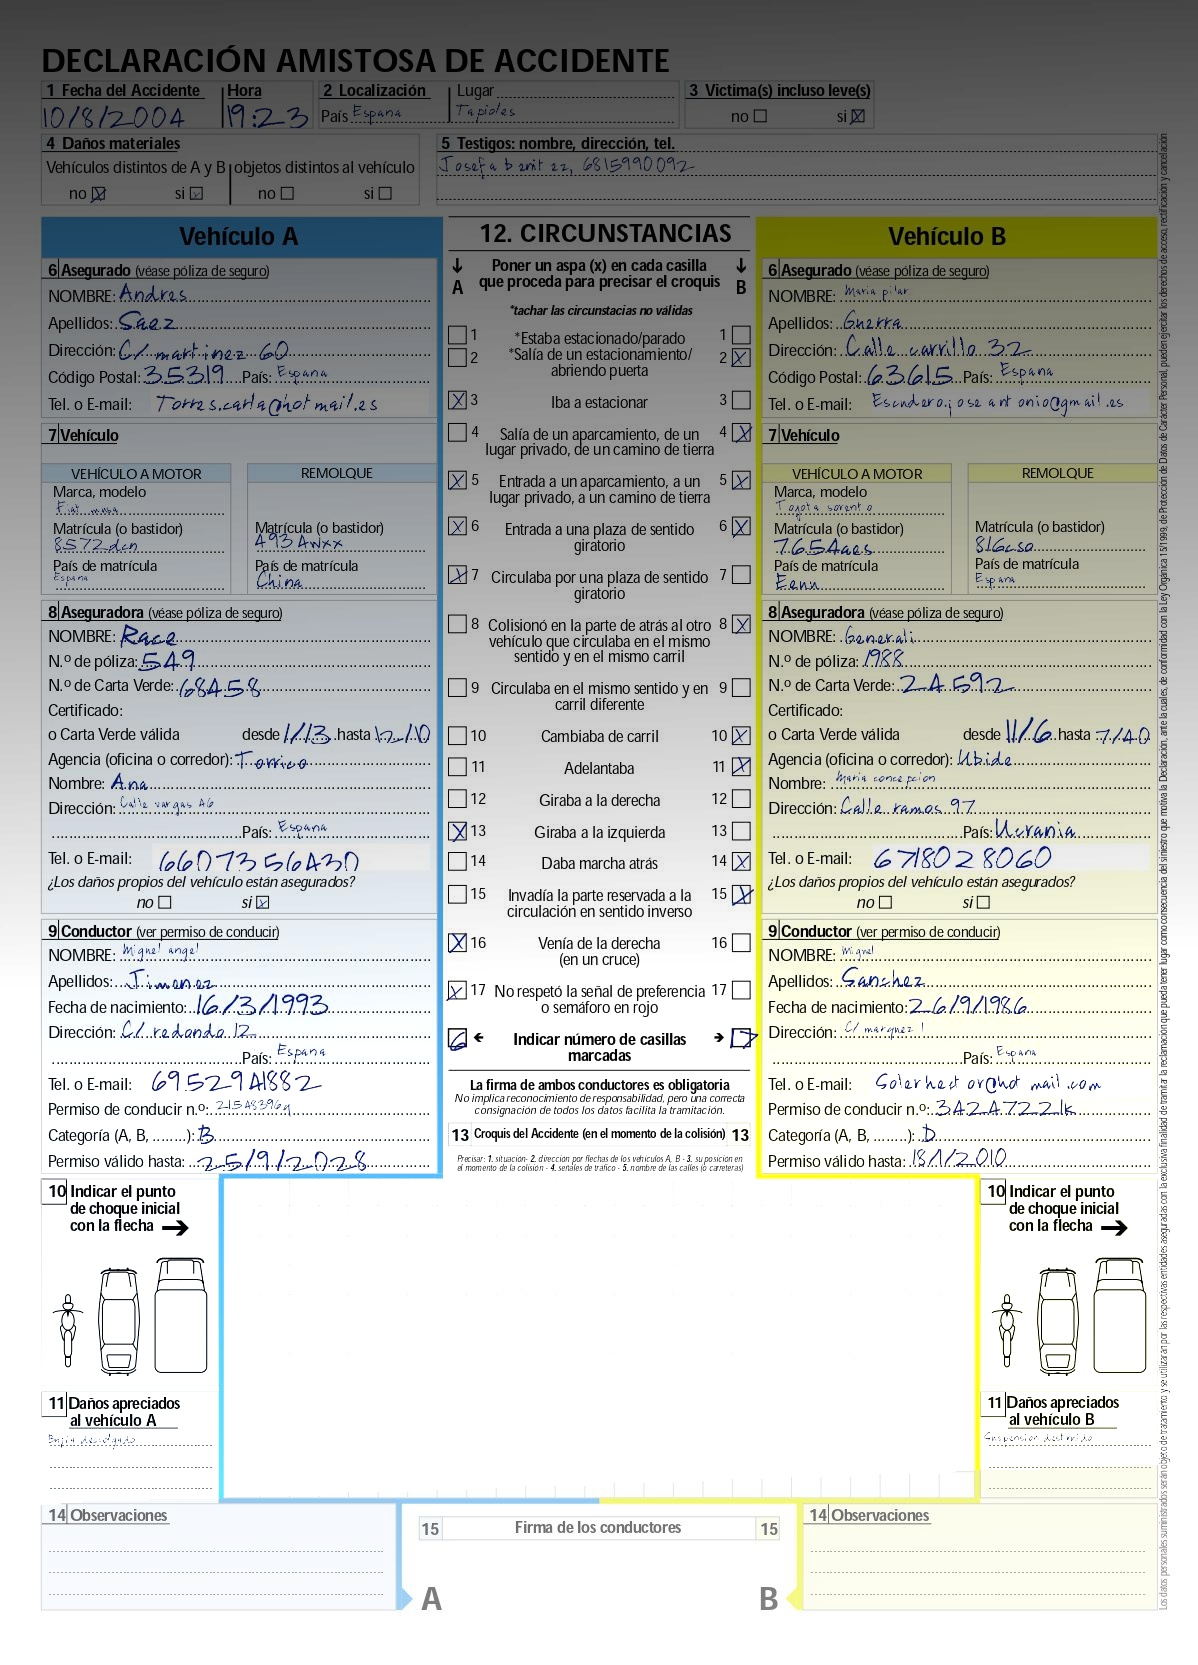 DECLARACIÓN AMISTOSA DE ACCIDENTE
1 Fecha del Accidente Hora 2 Localización Lugar 3 Victima(s) incluso leve(s)
10/8/2004 19:23 País Espana Tapioles no si X
4 Daños materiales 5 Testigos: nombre, dirección, tel.
Vehículos distintos de A y B objetos distintos al vehículo Josefa benitez, 6815990092
no X si X no si
Vehículo A
6 Asegurado (véase póliza de seguro)
NOMBRE: Andres
Apellidos: Saez
Dirección: C/ martinez 60
Código Postal: 35319 País: Espana
Tel. o E-mail: Torres.carla@hotmail.es
7 Vehículo
VEHÍCULO A MOTOR REMOLQUE
Marca, modelo
Fiat
Matrícula (o bastidor) Matrícula (o bastidor)
8572dcn 493Awxx
País de matrícula País de matrícula
Espana China
8 Aseguradora (véase póliza de seguro)
NOMBRE: Race
N.º de póliza: 549
N.º de Carta Verde: 68458
Certificado:
o Carta Verde válida desde 1/13 hasta 12/10
Agencia (oficina o corredor): Torrico
Nombre: Ana
Dirección: Calle vargas 46
País: Espana
Tel. o E-mail: 6607356430
¿Los daños propios del vehículo están asegurados?
no si X
9 Conductor (ver permiso de conducir)
NOMBRE: Miguel angel
Apellidos: Jimenez
Fecha de nacimiento: 16/3/1993
Dirección: C/ redondo 12
País: Espana
Tel. o E-mail: 6952941882
Permiso de conducir n.º: 21548396y
Categoría (A, B, ........): B
Permiso válido hasta: 25/9/2028
12. CIRCUNSTANCIAS
A Poner un aspa (x) en cada casilla B
que proceda para precisar el croquis
*tachar las circunstacias no válidas
1 *Estaba estacionado/parado 1
2 *Salía de un estacionamiento/ 2 X
abriendo puerta
X 3 Iba a estacionar 3
4 Salía de un aparcamiento, de un 4 X
lugar privado, de un camino de tierra
X 5 Entrada a un aparcamiento, a un 5 X
lugar privado, a un camino de tierra
X 6 Entrada a una plaza de sentido 6 X
giratorio
X 7 Circulaba por una plaza de sentido 7
giratorio
8 Colisionó en la parte de atrás al otro 8 X
vehículo que circulaba en el mismo
sentido y en el mismo carril
9 Circulaba en el mismo sentido y en 9
carril diferente
10 Cambiaba de carril 10 X
11 Adelantaba 11 X
12 Giraba a la derecha 12
X 13 Giraba a la izquierda 13
14 Daba marcha atrás 14 X
15 Invadía la parte reservada a la 15 X
circulación en sentido inverso
X 16 Venía de la derecha 16
(en un cruce)
X 17 No respetó la señal de preferencia 17
o semáforo en rojo
6 Indicar número de casillas 7
marcadas
La firma de ambos conductores es obligatoria
No implica reconocimiento de responsabilidad, pero una correcta
consignación de todos los datos facilita la tramitación.
13 Croquis del Accidente (en el momento de la colisión) 13
Precisar: 1. situación- 2. dirección por flechas de los vehículos A, B - 3. su posición en
el momento de la colisión - 4. señales de tráfico - 5. nombre de las calles (o carreteras)
Vehículo B
6 Asegurado (véase póliza de seguro)
NOMBRE: Maria pilar
Apellidos: Guerra
Dirección: Calle carrillo 32
Código Postal: 63615 País: Espana
Tel. o E-mail: Escudero.joseantonio@gmail.es
7 Vehículo
VEHÍCULO A MOTOR REMOLQUE
Marca, modelo
Toyota sorento
Matrícula (o bastidor) Matrícula (o bastidor)
7654aes 816cso
País de matrícula País de matrícula
Eenn Espana
8 Aseguradora (véase póliza de seguro)
NOMBRE: Generali
N.º de póliza: 1988
N.º de Carta Verde: 24592
Certificado:
o Carta Verde válida desde 11/6 hasta 7/40
Agencia (oficina o corredor): Ubide
Nombre: Maria concepcion
Dirección: Calle ramos 97
País: Ucrania
Tel. o E-mail: 6718028060
¿Los daños propios del vehículo están asegurados?
no si
9 Conductor (ver permiso de conducir)
NOMBRE: Miguel
Apellidos: Sanchez
Fecha de nacimiento: 26/9/1986
Dirección: C/ marquez 1
País: Espana
Tel. o E-mail: Solerhector@hotmail.com
Permiso de conducir n.º: 34247221k
Categoría (A, B, ........): D
Permiso válido hasta: 18/1/2010
10 Indicar el punto
de choque inicial
con la flecha
11 Daños apreciados
al vehículo A
10 Indicar el punto
de choque inicial
con la flecha
11 Daños apreciados
al vehículo B
Suspension destruido
14 Observaciones
15 Firma de los conductores 15
A B
14 Observaciones
Los datos personales suministrados serán objeto de tratamiento y se utilizaran por las respectivas entidades aseguradas con la exclusiva finalidad de tramitar la reclamación que pueda tener lugar como consecuencia del siniestro que motiva la Declaración, ante la cuales, de conformidad con la Ley Orgánica 15/1999, de Protección de Datos de Carácter Personal, pueden ejercitar los derechos de acceso, rectificación y cancelación